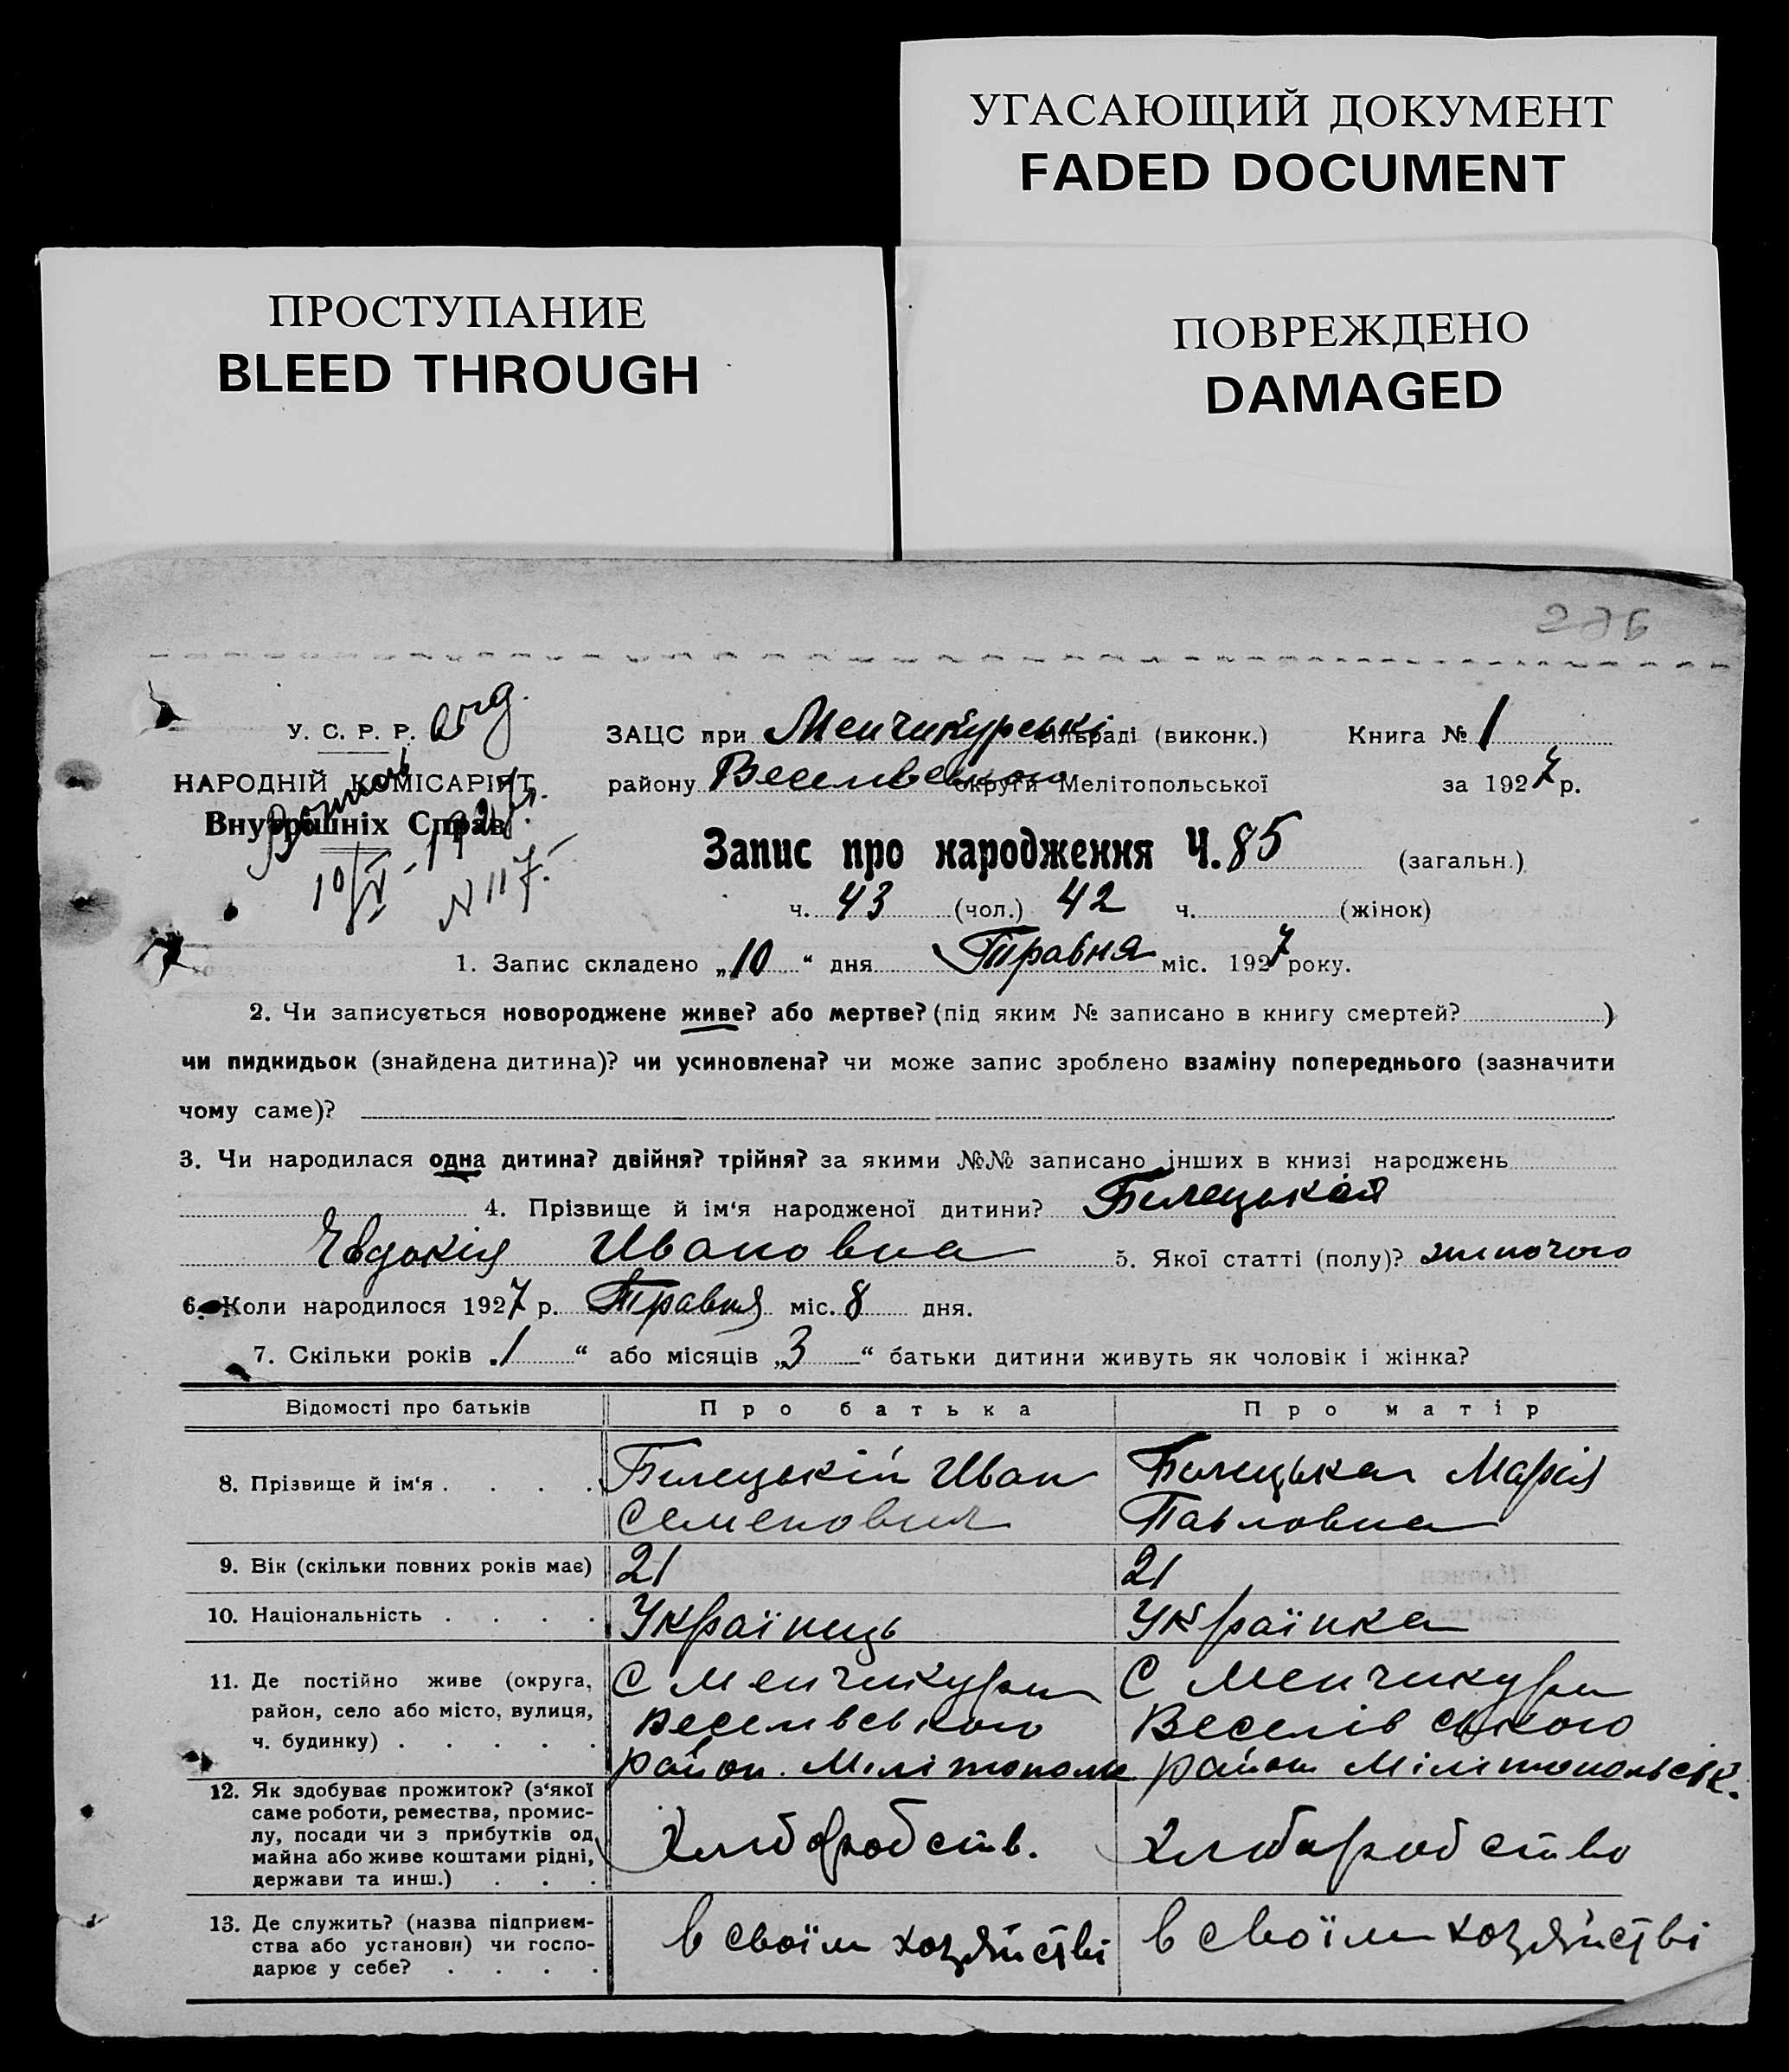 УГАСАЮЩИЙ ДОКУМЕНТ
FADED DOCUMENT
ПРОСТУПАНИЕ
BLEED THROUGH
ПОВРЕЖДЕНО
DAMAGED
276
У. С. Р. Р.
НАРОДНІЙ КОМІСАРІЯТ
Внутрішніх Справ
10/V - 1927 р.
N 117.
ЗАЦС при Менчикурські сільраді (виконк.) Книга № 1
району Веселовського округи Мелітопольської за 1927 р.
Запис про народження Ч. 85 (загальн.)
ч. 43 (чол.) 42 ч. (жінок)
1. Запис складено „10“ дня Травня міс. 1927 року.
2. Чи записується новороджене живе? або мертве? (під яким № записано в книгу смертей? )
чи пидкидьок (знайдена дитина)? чи усиновлена? чи може запис зроблено взаміну попереднього (зазначити
чому саме)?
3. Чи народилася одна дитина? двійня? трійня? за якими №№ записано інших в книзі народжень
4. Прізвище й ім‘я народженої дитини? Билецькая
Євдокія Ивановна 5. Якої статті (полу)? жиночого
6. Коли народилося 1927 р. Травня міс. 8 дня.
7. Скільки років „1“ або місяців „3“ батьки дитини живуть як чоловік і жінка?
Відомості про батьків Про батька Про матір
8. Прізвище й ім‘я . . . . Билецькій Иван Билецькая Марія
Семенович Павловна
9. Вік (скільки повних років має) 21 21
10. Національність . . . . Українець Українка
11. Де постійно живе (округа, С Менчикури С Менчикури
район, село або місто, вулиця, Веселівського Веселівського
ч. будинку) . . . . . район. Мілітополь район Мілітопольськ.
12. Як здобуває прожиток? (з‘якої
саме роботи, ремества, промис-
лу, посади чи з прибутків од Хлиборобств. Хлиборобство
майна або живе коштами рідні,
держави та инш.) . . .
13. Де служить? (назва підприєм- в своїм хозяйстві в своїм хозяйстві
ства або установи) чи госпо-
дарює у себе? . . . .